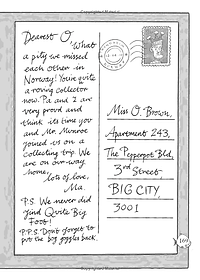 Dearest O
What
a pity we missed
each other in
Norway! You're quite
a roving collector
now. Pa and I are
very proud and
think its time you
and Mr. Munroe
joined us on a
collecting trip. We
are on our way
home,
lots of love,
Ma.
P.S. We never did
find Quite Big
Foot!
P.P.S. Don't forget to
put the big goggles back.
Miss O. Brown,
Apartment 243,
The Pepperpot Bld,
3rd Street
BIG CITY
3001
169